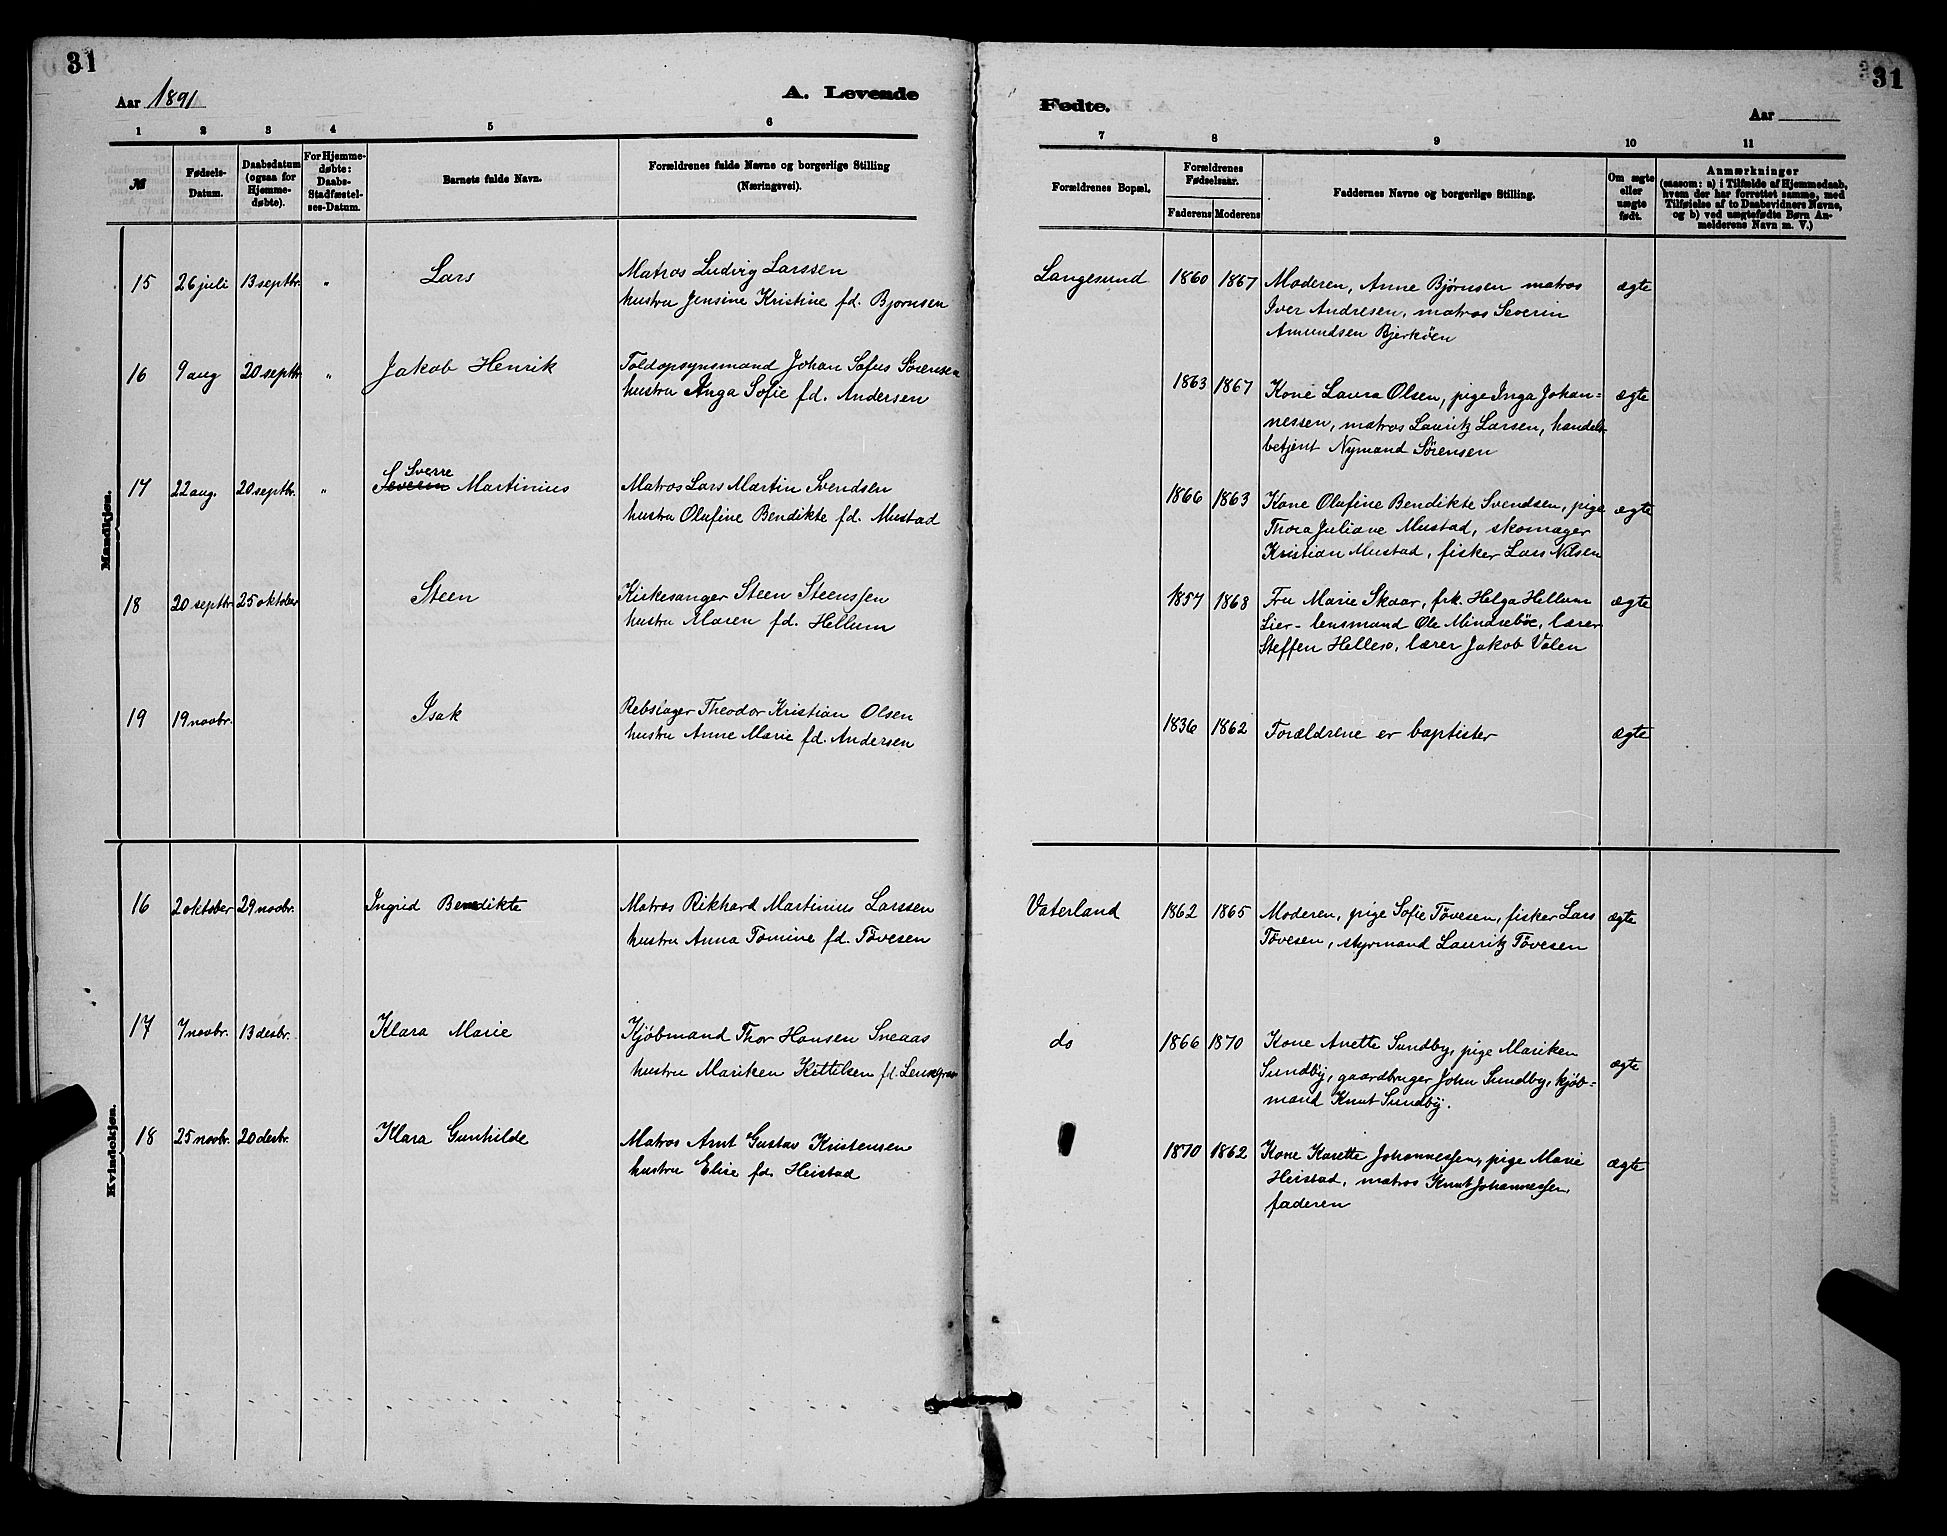 31
Aar 1891
A. Levende
1 2 3 4 5 6
№
Fødsels-
Datum.
Daabsdatum
(ogsaa for
Hjemme-
døbte).
For Hjemme-
døbte:
Daabs-
Stadfæstel-
ses-Datum.
Barnets fulde Navn.
Forældrenes fulde Navne og borgerlige Stilling
(Næringsvei).
Mandkjøn.
15 26 juli 13 septbr. " Lars
Matros Ludvig Larssen
hustru Jensine Kristine fd. Bjørnsen
16 9 aug 20 septbr " Jakob Henrik
Toldopsynsmand Johan Sofus Sørensen
hustru Anga Sofie fd. Andersen
Sverre
17 22 aug. 20 septbr. " Severin Martinius
Matros Lars Martin Svendsen
hustru Olufine Bendikte fd. Mustad
18 20 septbr 25 oktober Steen
Kirkesanger Steen Steenssen
hustru Maren fd. Hellum
19 19 novbr. Isak
Rebslager Theodor Kristian Olsen
hustru Anne Marie fd. Andersen
Kvindekjøn.
16 2 oktober 29 novbr. Ingrid Bendikte
Matros Rikhard Martinius Larssen
hustru Anna Tomine fd. Tövesen
17 7 novbr. 13 desbr. Klara Marie
Kjöbmand Thor Hansen Sneaas
hustru Mariken Kittilsen fd.
18 25 novbr. 20 desbr. Klara Gunhilde
Matros Arnt Gustav Kristensen
hustru Elise fd. Heistad
31
Fødte.
Aar
7 8 9 10 11
Forældrenes Bopæl.
Forældrenes
Fødselsaar.
Faderens Moderens
Faddernes Navne og borgerlige Stilling.
Om ægte
eller
uægte
født.
Anmærkninger
(saasom: a) i Tilfælde af Hjemmedaab,
hvem der har forrettet samme, med
Tilføielse af to Daabsvidners Navne,
og b) ved uægtefødte Børn An-
melderens Navn m. V.)
Langesund 1860 1867 Moderen, Anne Bjørnsen matros ægte
Iver Andresen, matros Severin
Amundsen Bjerköen
1863 1867 Kone Laura Olsen, pige Inga Johan- ægte
nessen, matros Lauritz Larsen, handels-
betjent Nymand Sörensen
1866 1863 Kone Olufine Bendikte Svendsen, pige ægte
Thora Juliane Mustad, skomager
Kristian Mustad, fisker Lars Nilsen
1857 1868 Fru Marie Skaar, frk. Helga Hellum ægte
Lier- lensmand Ole Mindreböe, lærer
Steffen Helleso, lærer Jakob Valen
1836 1862 Forældrene er baptister ægte
Vaterland 1862 1865 Moderen, pige Sofie Tövesen, fisker Lars ægte
Tövesen, styrmand Lauritz Tövesen
do 1866 1870 Kone Anette Sundby, pige Mariken ægte
Sundby, gaardbruger John Sundby, kjöb-
mand Knut Sundby.
1870 1862 Kone Karette Johannessen, pige Marie ægte
Heistad, matros Knut Johannessen,
faderen